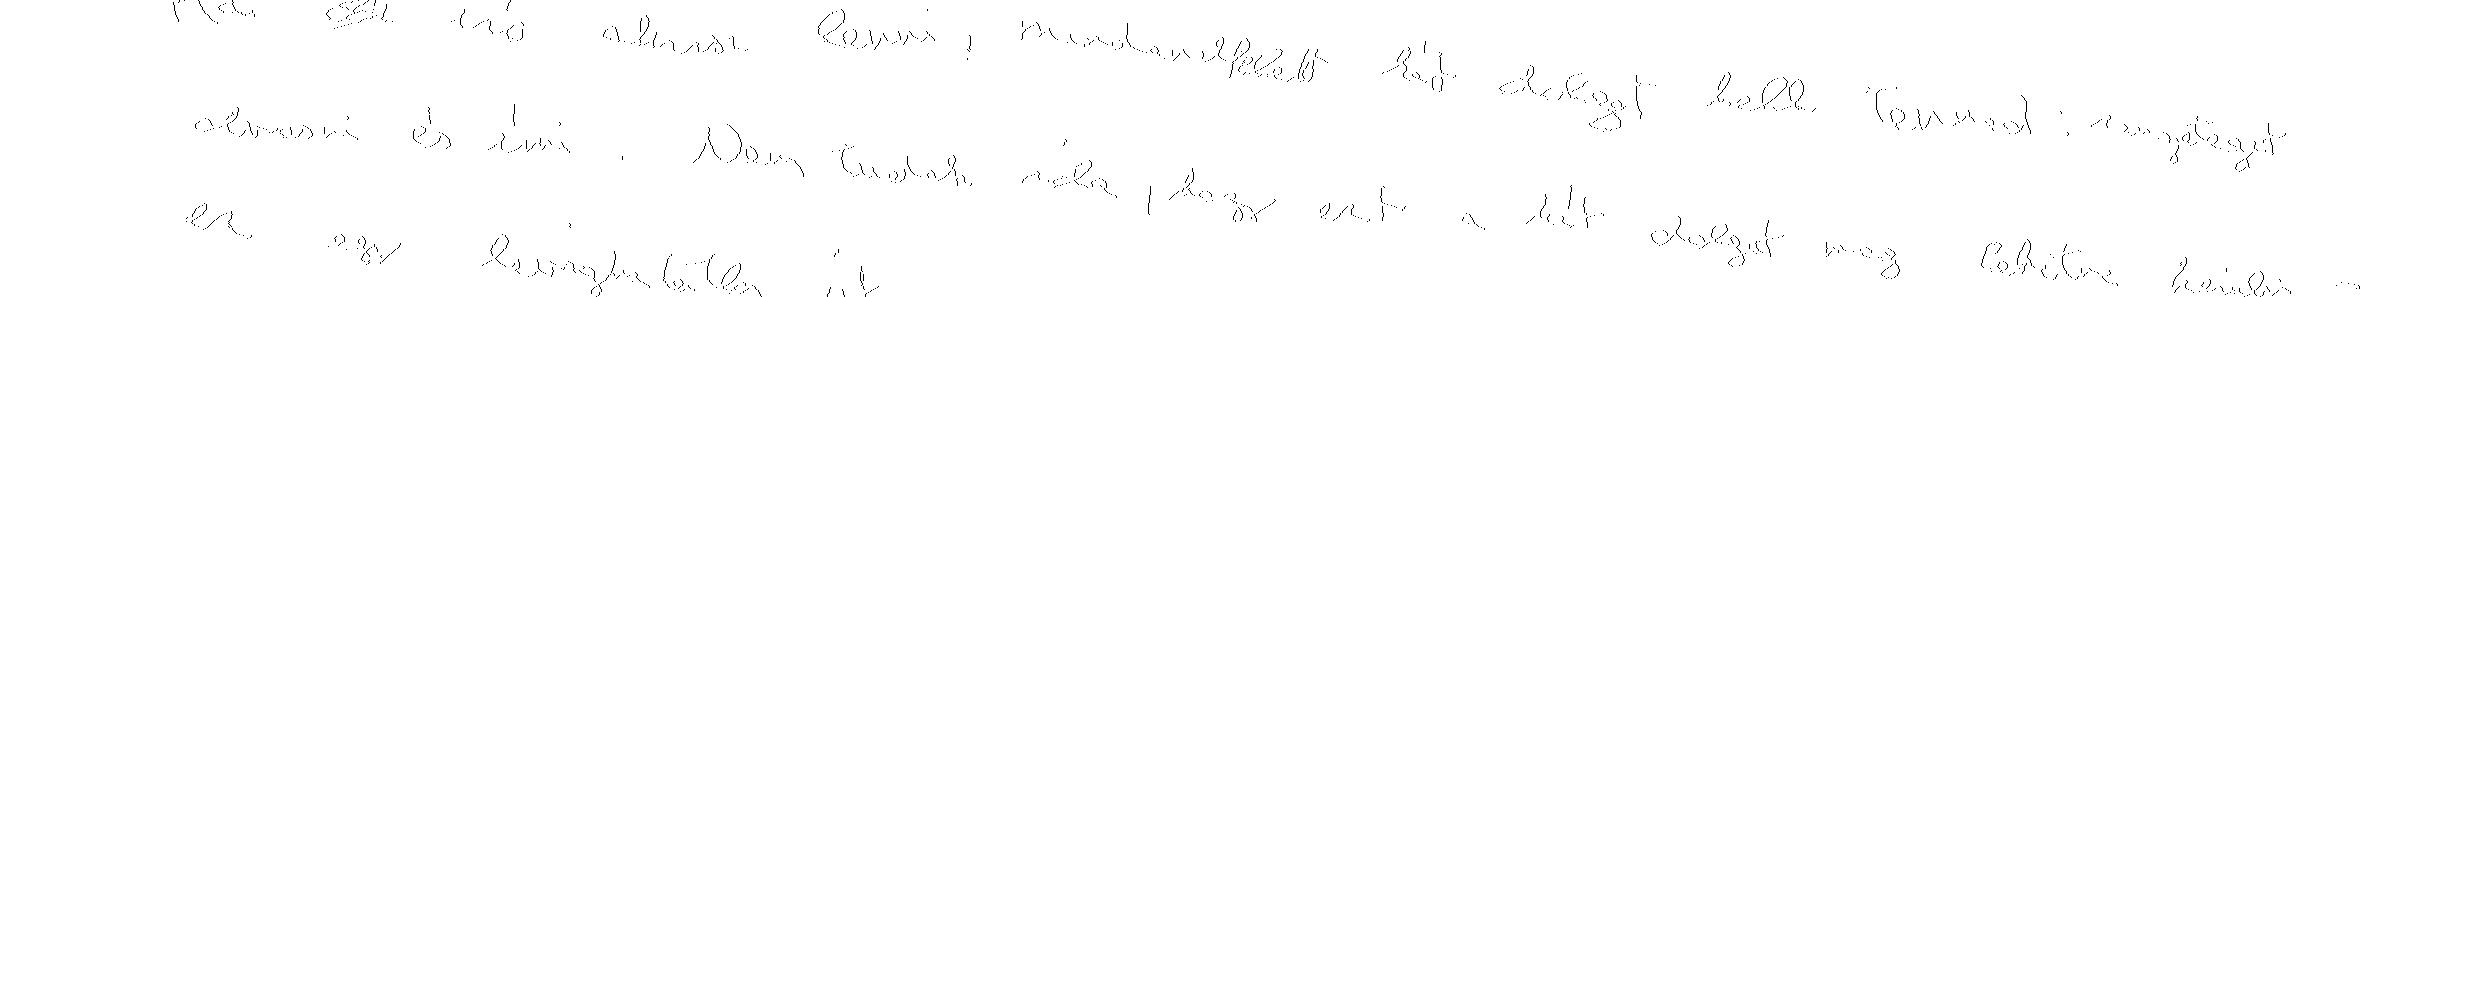 Ha író akarsz lenni, mindenekelőtt két dolgot kell tenned: rengeteget
olvasni és írni. Nem tudok róla, hogy ezt a két dolgot meg lehetne kerülni –
ez egy kevingbetűtlen út